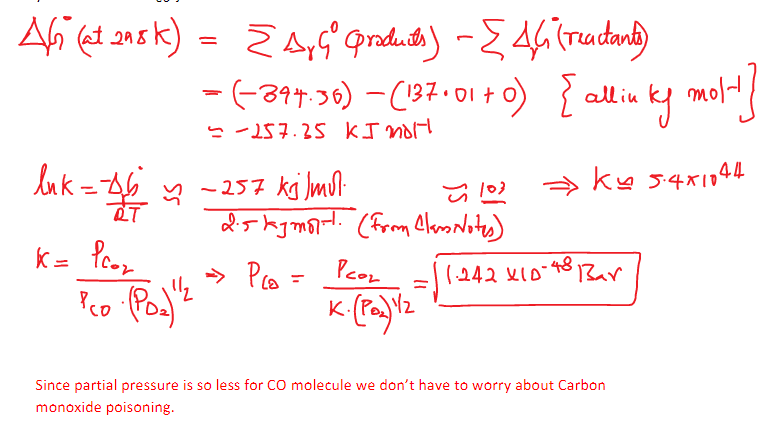 ΔG° (at 298K) = Σ ΔrG° (products) – Σ ΔfG° (reactants)
= (-394.36) – (137.01 + 0) { all in kJ mol-1 }
≈ -257.35 KJ mol-1
ln k = -ΔG° / RT ≈ -257 kJ/mol. / 2.5 kJ mol-1. (From Class Notes) ≈ 103 ⇒ K ≈ 5.4×10^44
K = PCO2 / PCO · (PO2)^1/2 ⇒ PCO = PCO2 / K·(PO2)^1/2 = 1.242 X10^-48 Bar
Since partial pressure is so less for CO molecule we don't have to worry about Carbon
monoxide poisoning.